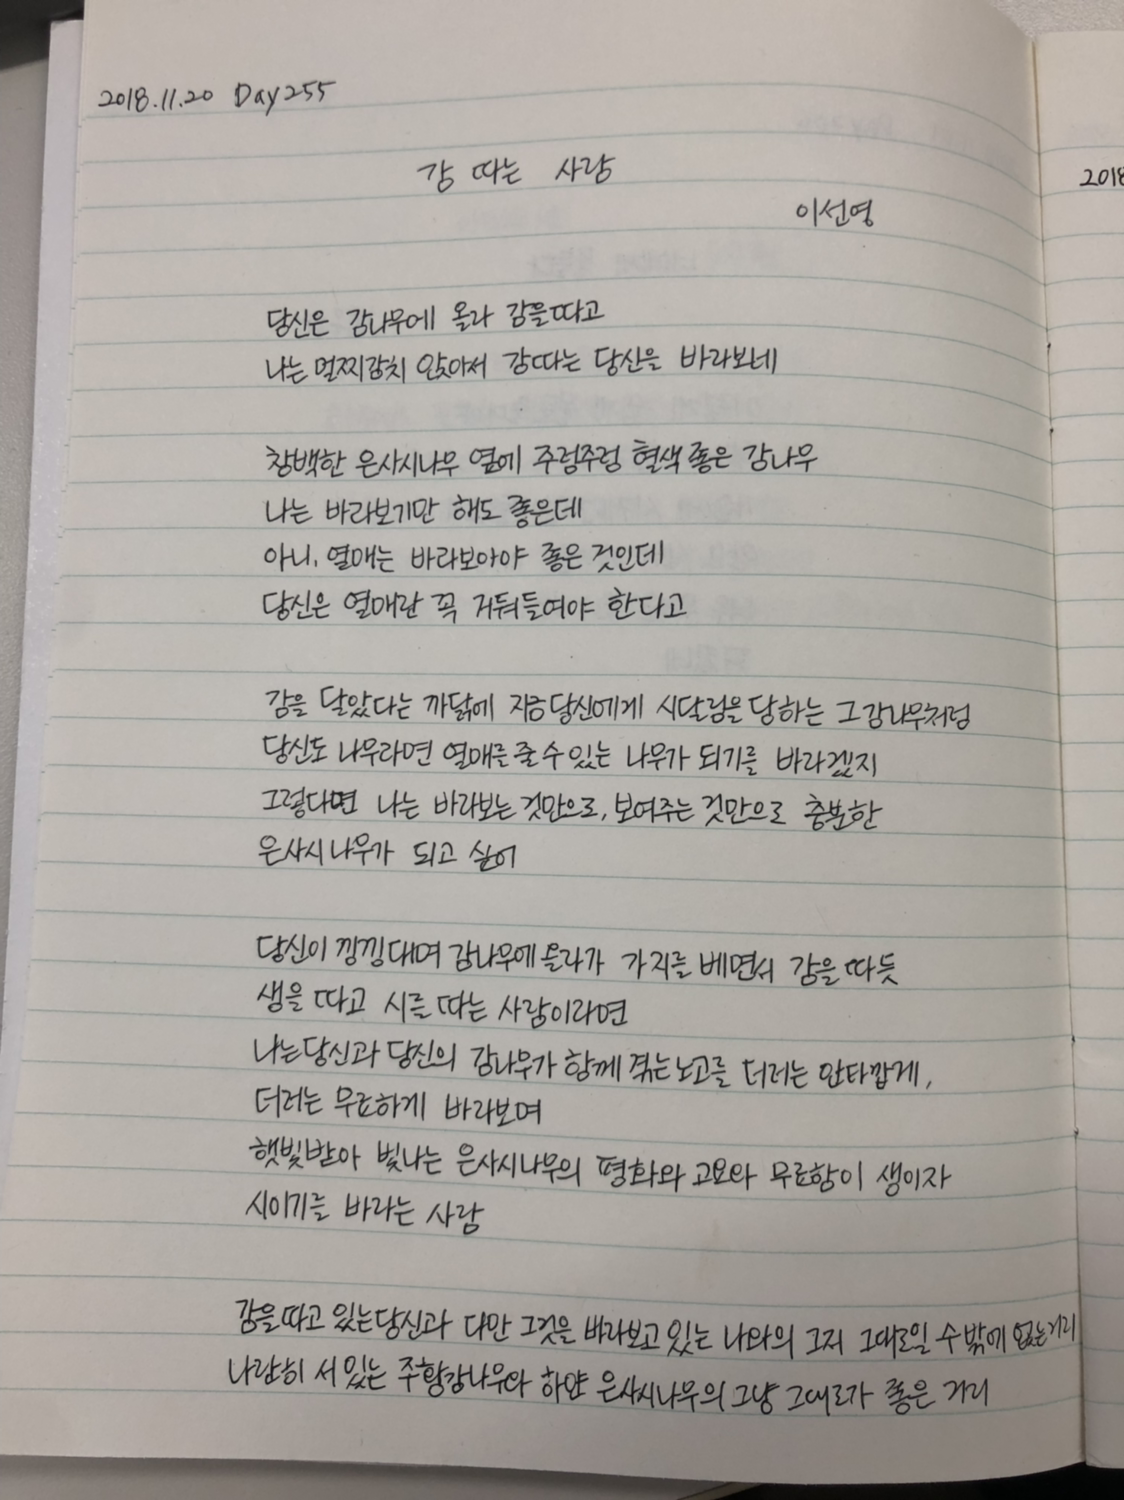 2018.11.20 Day255
감 따는 사람
이선영
당신은 감나무에 올라 감을 따고
나는 멀찌감치 앉아서 감따는 당신을 바라보네
창백한 은사시나무 옆에 주렁주렁 혈색 좋은 감나무
나는 바라보기만 해도 좋은데
아니, 열매는 바라보아야 좋은 것인데
당신은 열매란 꼭 거둬들여야 한다고
감을 달았다는 까닭에 지금 당신에게 시달림을 당하는 그 감나무처럼
당신도 나무라면 열매를 줄 수 있는 나무가 되기를 바라겠지
그렇다면 나는 바라보는 것만으로, 보여주는 것만으로 충분한
은사시나무가 되고 싶어
당신이 낑낑대며 감나무에 올라가 가지를 베면서 감을 따듯
생을 따고 시를 따는 사람이라면
나는 당신과 당신의 감나무가 함께 겪는 노고를 더러는 안타깝게,
더러는 무료하게 바라보며
햇빛받아 빛나는 은사시나무의 평화와 고요와 무료함이 생이자
시이기를 바라는 사람
감을 따고 있는 당신과 다만 그것을 바라보고 있는 나와의 그저 그대로일 수 밖에 없는 거리
나란히 서 있는 주황감나무와 하얀 은사시나무의 그냥 그대로가 좋은 거리
2018